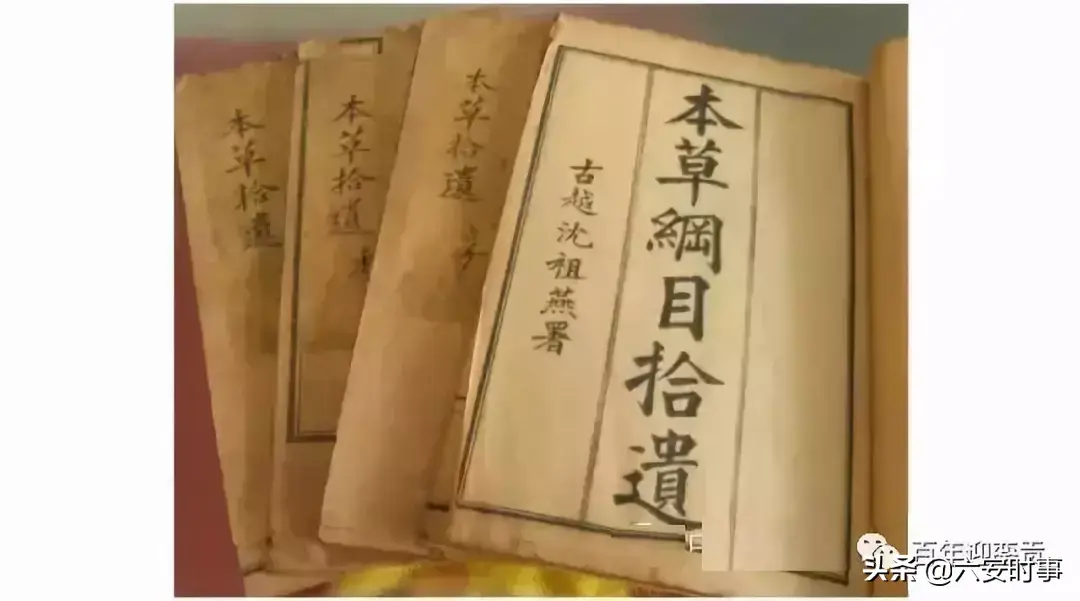 本草綱目拾遺
古越沈祖燕署
本草拾遺
本草拾遺
本草拾遺
头条 @六安时事